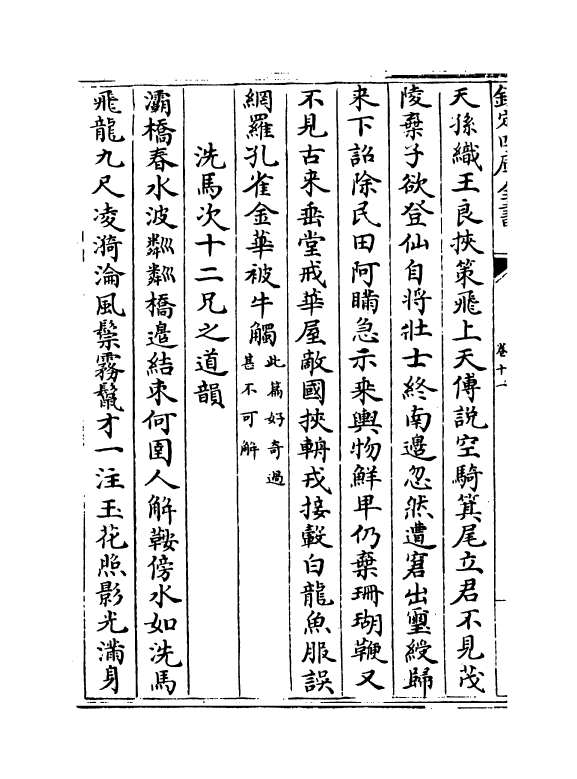 欽定四庫全書
卷十一
天孫織王良挾策飛上天傅説空騎箕尾立君不見茂
陵棄子欲登仙自將壯士終南邊忽然遭窘出璽綬歸
来下詔除民田阿瞞急示乗輿物鮮卑仍棄珊瑚鞭又
不見古来垂堂戒華屋敵國挾輈戎接轂白龍魚服誤
網羅孔雀金華被牛觸此篇好奇過
甚不可解
洗馬次十二兄之道韻
灞橋春水波粼粼橋邉結束何圉人解鞍傍水如洗馬
飛龍九尺凌漪淪風鬃霧鬛才一注玉花照影光滿身